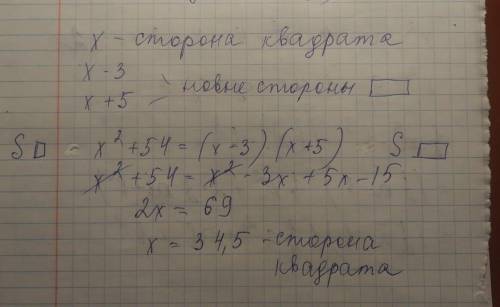 x - сторона квадрата
x - 3
x + 5 новые стороны
S x² + 54 = (x - 3)(x + 5) S
x² + 54 = x² - 3x + 5x - 15
2x = 69
x = 34,5 - сторона
квадрата